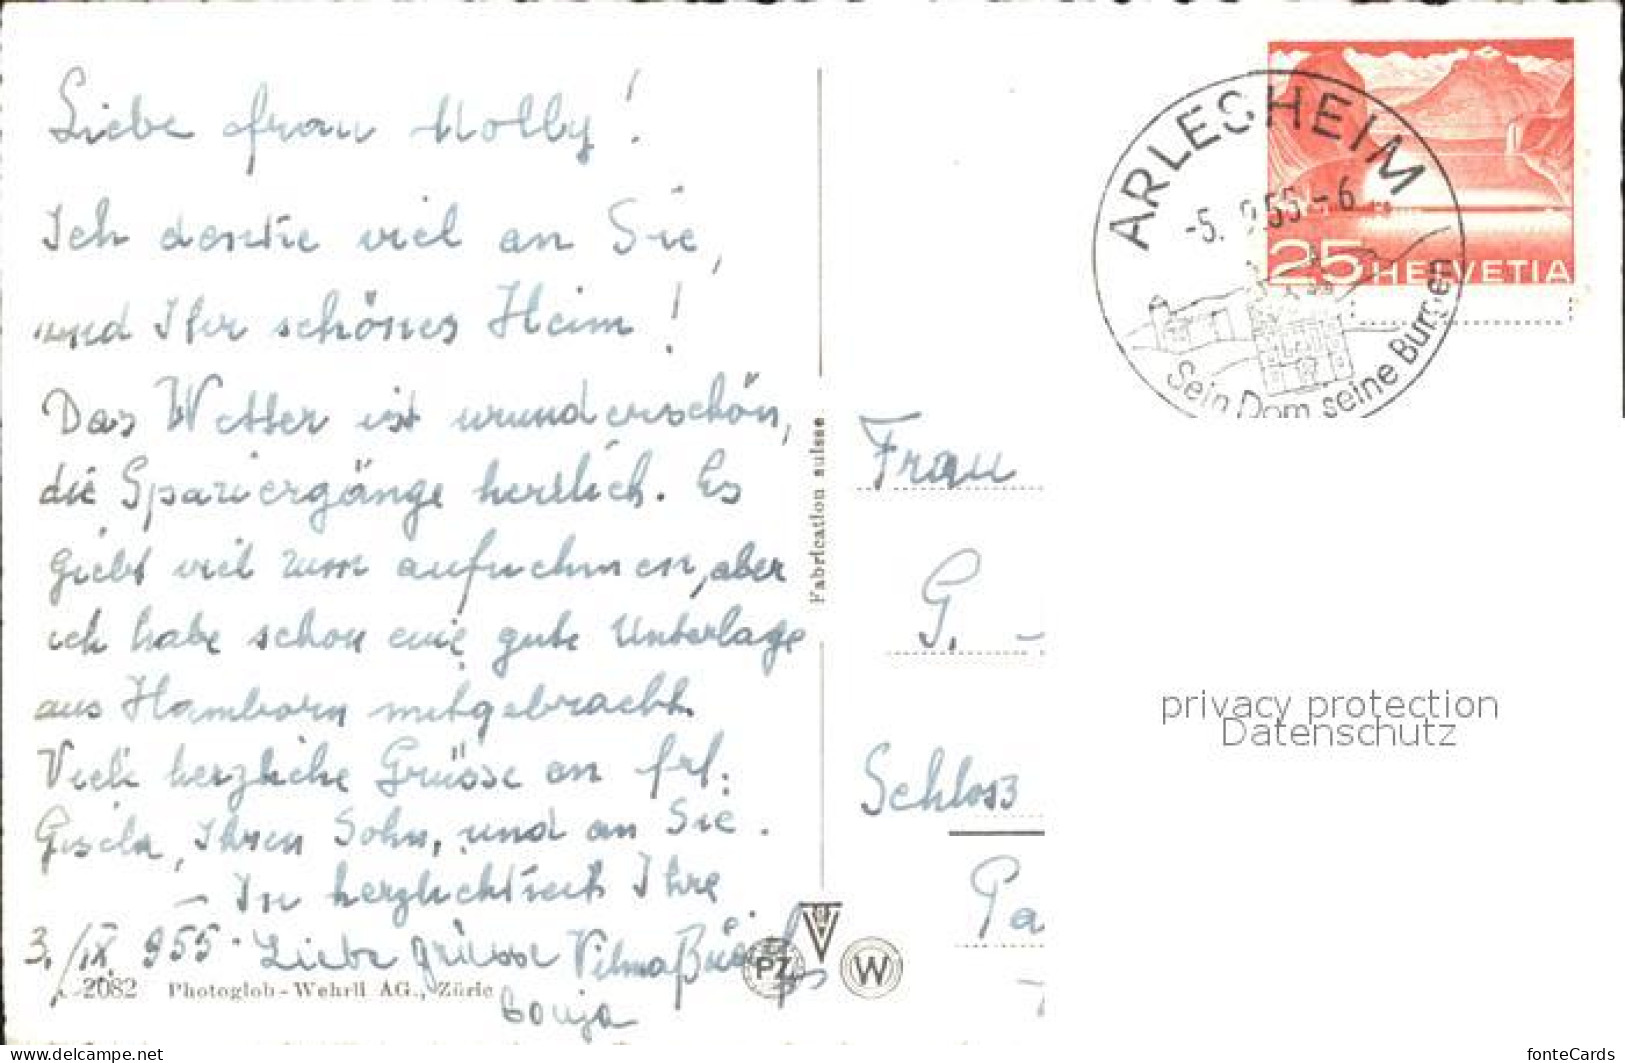 Liebe Frau Molly!
Ich denke viel an Sie,
und Ihr schönes Heim!
Das Wetter ist wunderschön,
die Spaziergänge herrlich. Es
giebt viel zum aufnehmen, aber
ich habe schon eine gute Unterlage
aus Hamborn mitgebracht.
Viele herzliche Grüsse an Frl.
Gisela, Ihren Sohn, und an Sie.
- In herzlichkeit Ihre
3./IX. 955. Liebe grüsse Vilma
Sonja
2082 Photoglob-Wehrli AG., Züric
Fabrication suisse
PZ
W
ARLESHEIM
-5. 9.55-6
Sein Dom seine Burgen
25 HELVETIA
Frau
G.
Schloss
Pa
privacy protection
Datenschutz
https://www.delcampe.net
fonteCards